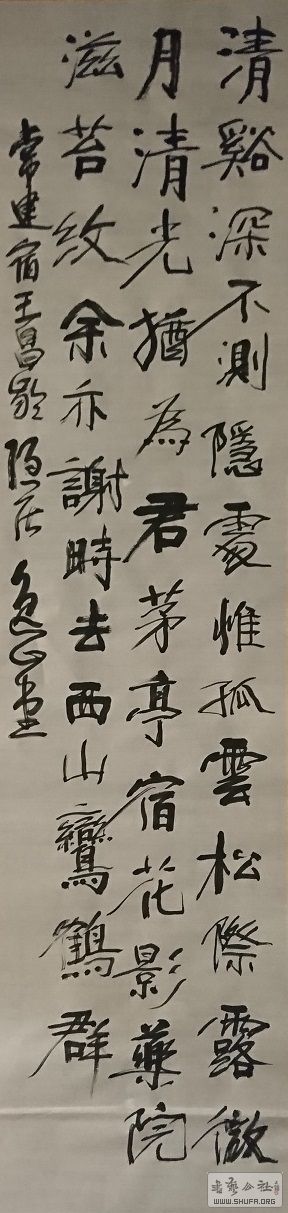 清谿深不測隱處惟孤雲松際露微
月清光猶為君茅亭宿花影藥院
滋苔紋余亦謝時去西山鸞鶴群
常建宿王昌齡隱居
書藝公社
WWW.SHUFA.ORG